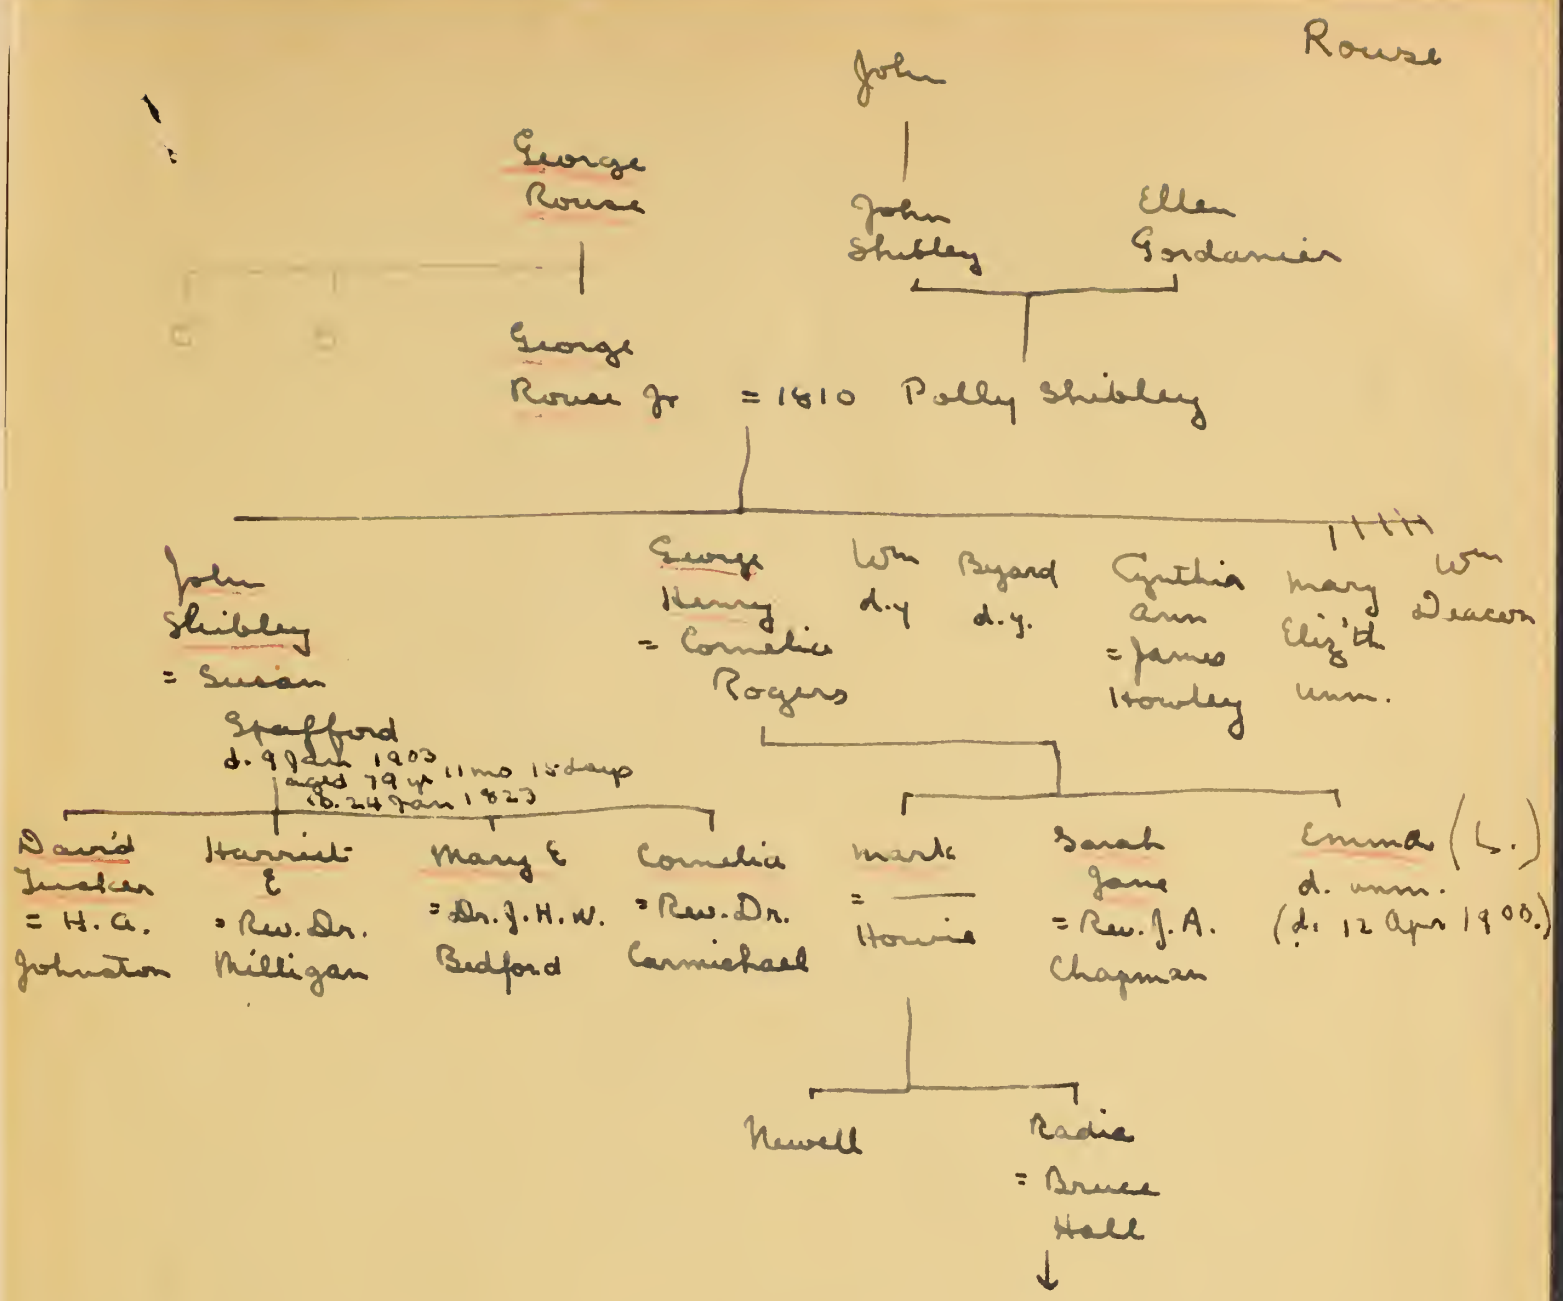 Rouse
John
George
Rouse
John
Shibley
Ellen
Gordanier
George
Rouse Jr = 1810 Polly Shibley
John
Shibley
= Susan
Spafford
d. 9 Jan 1903
aged 79 yr 11 mo 15 days
b. 24 Jan 1823
George
Henry
= Cornelia
Rogers
Wm
d.y
Byard
d.y.
Cynthia
Ann
= James
Howley
Mary
Eliz'th
unm.
Wm
Deacon
David
= H. A.
Johnston
Harriet
E
= Rev. Dr.
Milligan
Mary E
= Dr. J. H. W.
Bedford
Cornelia
= Rev. Dr.
Carmichael
Mark
= ———
Howie
Sarah
Jane
= Rev. J. A.
Chapman
Emma (L.)
d. unm.
(d. 12 Apr 1900.)
Newell
Radia
= Bruce
Hall